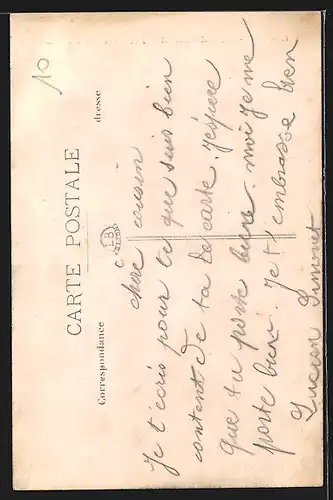 10
CARTE POSTALE
Correspondance
adresse
C LB
cher cousin
Je t'écris pour te que suis bien
content de ta de carte. J'espère
que tu porte bien. moi Je me
porte bien. Je t'embrasse bien
Lucien Simonet